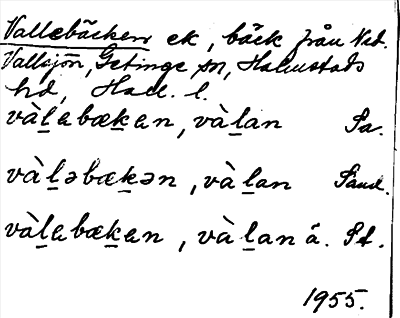 Vallebäcken ek, bäck från Ned.
Vallsjön, Getinge sn, Halmstads
hd, Hall. l.
vàḻabæḵan, vàḻan Sa.
vàḻəbæḵən, vàḻan Sand.
vàḻabæḵan, vàḻan ä. St.
1955.